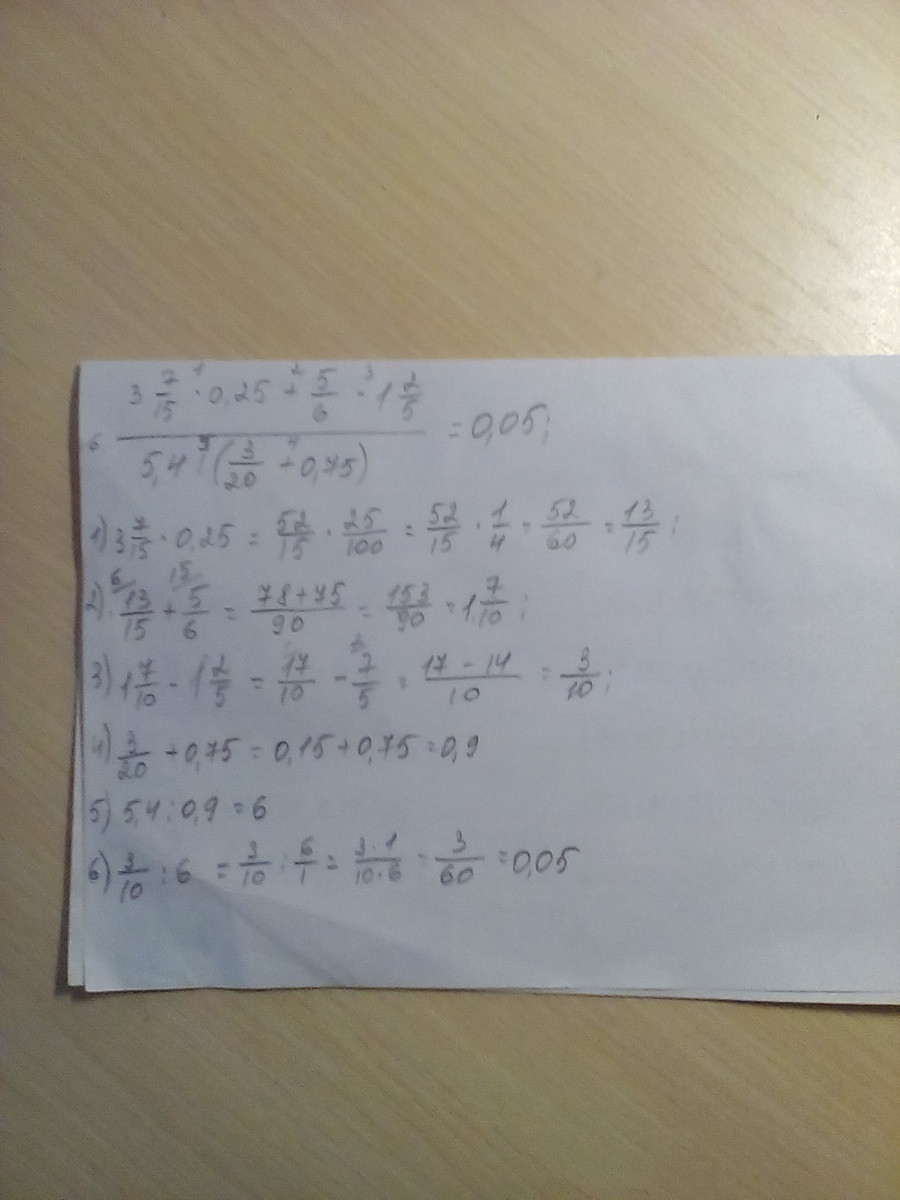 3 7/15 · 0,25 + 5/6 - 1 2/5
6. ―――――――――― = 0,05;
5,4 : (3/20 + 0,75)
1) 3 7/15 · 0,25 = 52/15 · 25/100 = 52/15 · 1/4 = 52/60 = 13/15;
2) 13/15 + 5/6 = 78+75/90 = 153/90 = 1 7/10;
3) 1 7/10 - 1 2/5 = 17/10 - 7/5 = 17-14/10 = 3/10;
4) 3/20 + 0,75 = 0,15 + 0,75 = 0,9
5) 5,4 : 0,9 = 6
6) 3/10 : 6 = 3/10 : 6/1 = 3·1/10·6 = 3/60 = 0,05